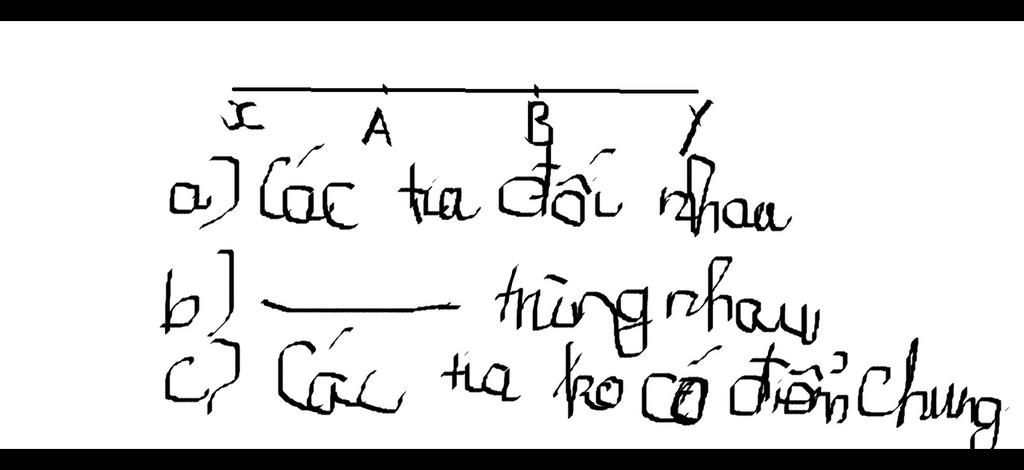 x A B y
a) Các tia đối nhau
b) ——— trùng nhau
c) Các tia ko có điểm chung